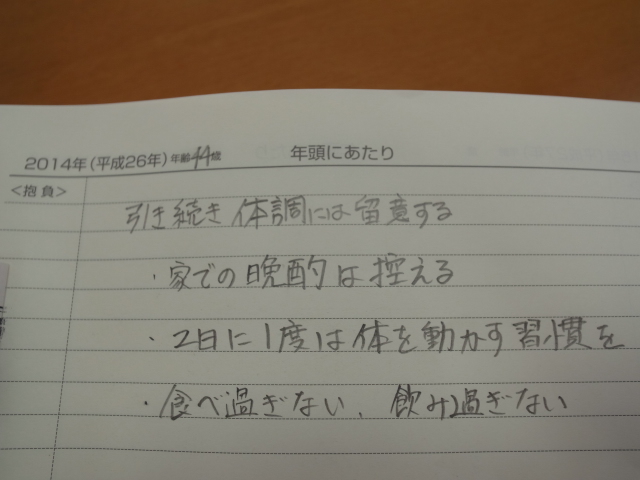 2014年(平成26年)年齢44歳 年頭にあたり
<抱負>
引き続き体調には留意する
・家での晩酌は控える
・2日に1度は体を動かす習慣を
・食べ過ぎない、飲み過ぎない